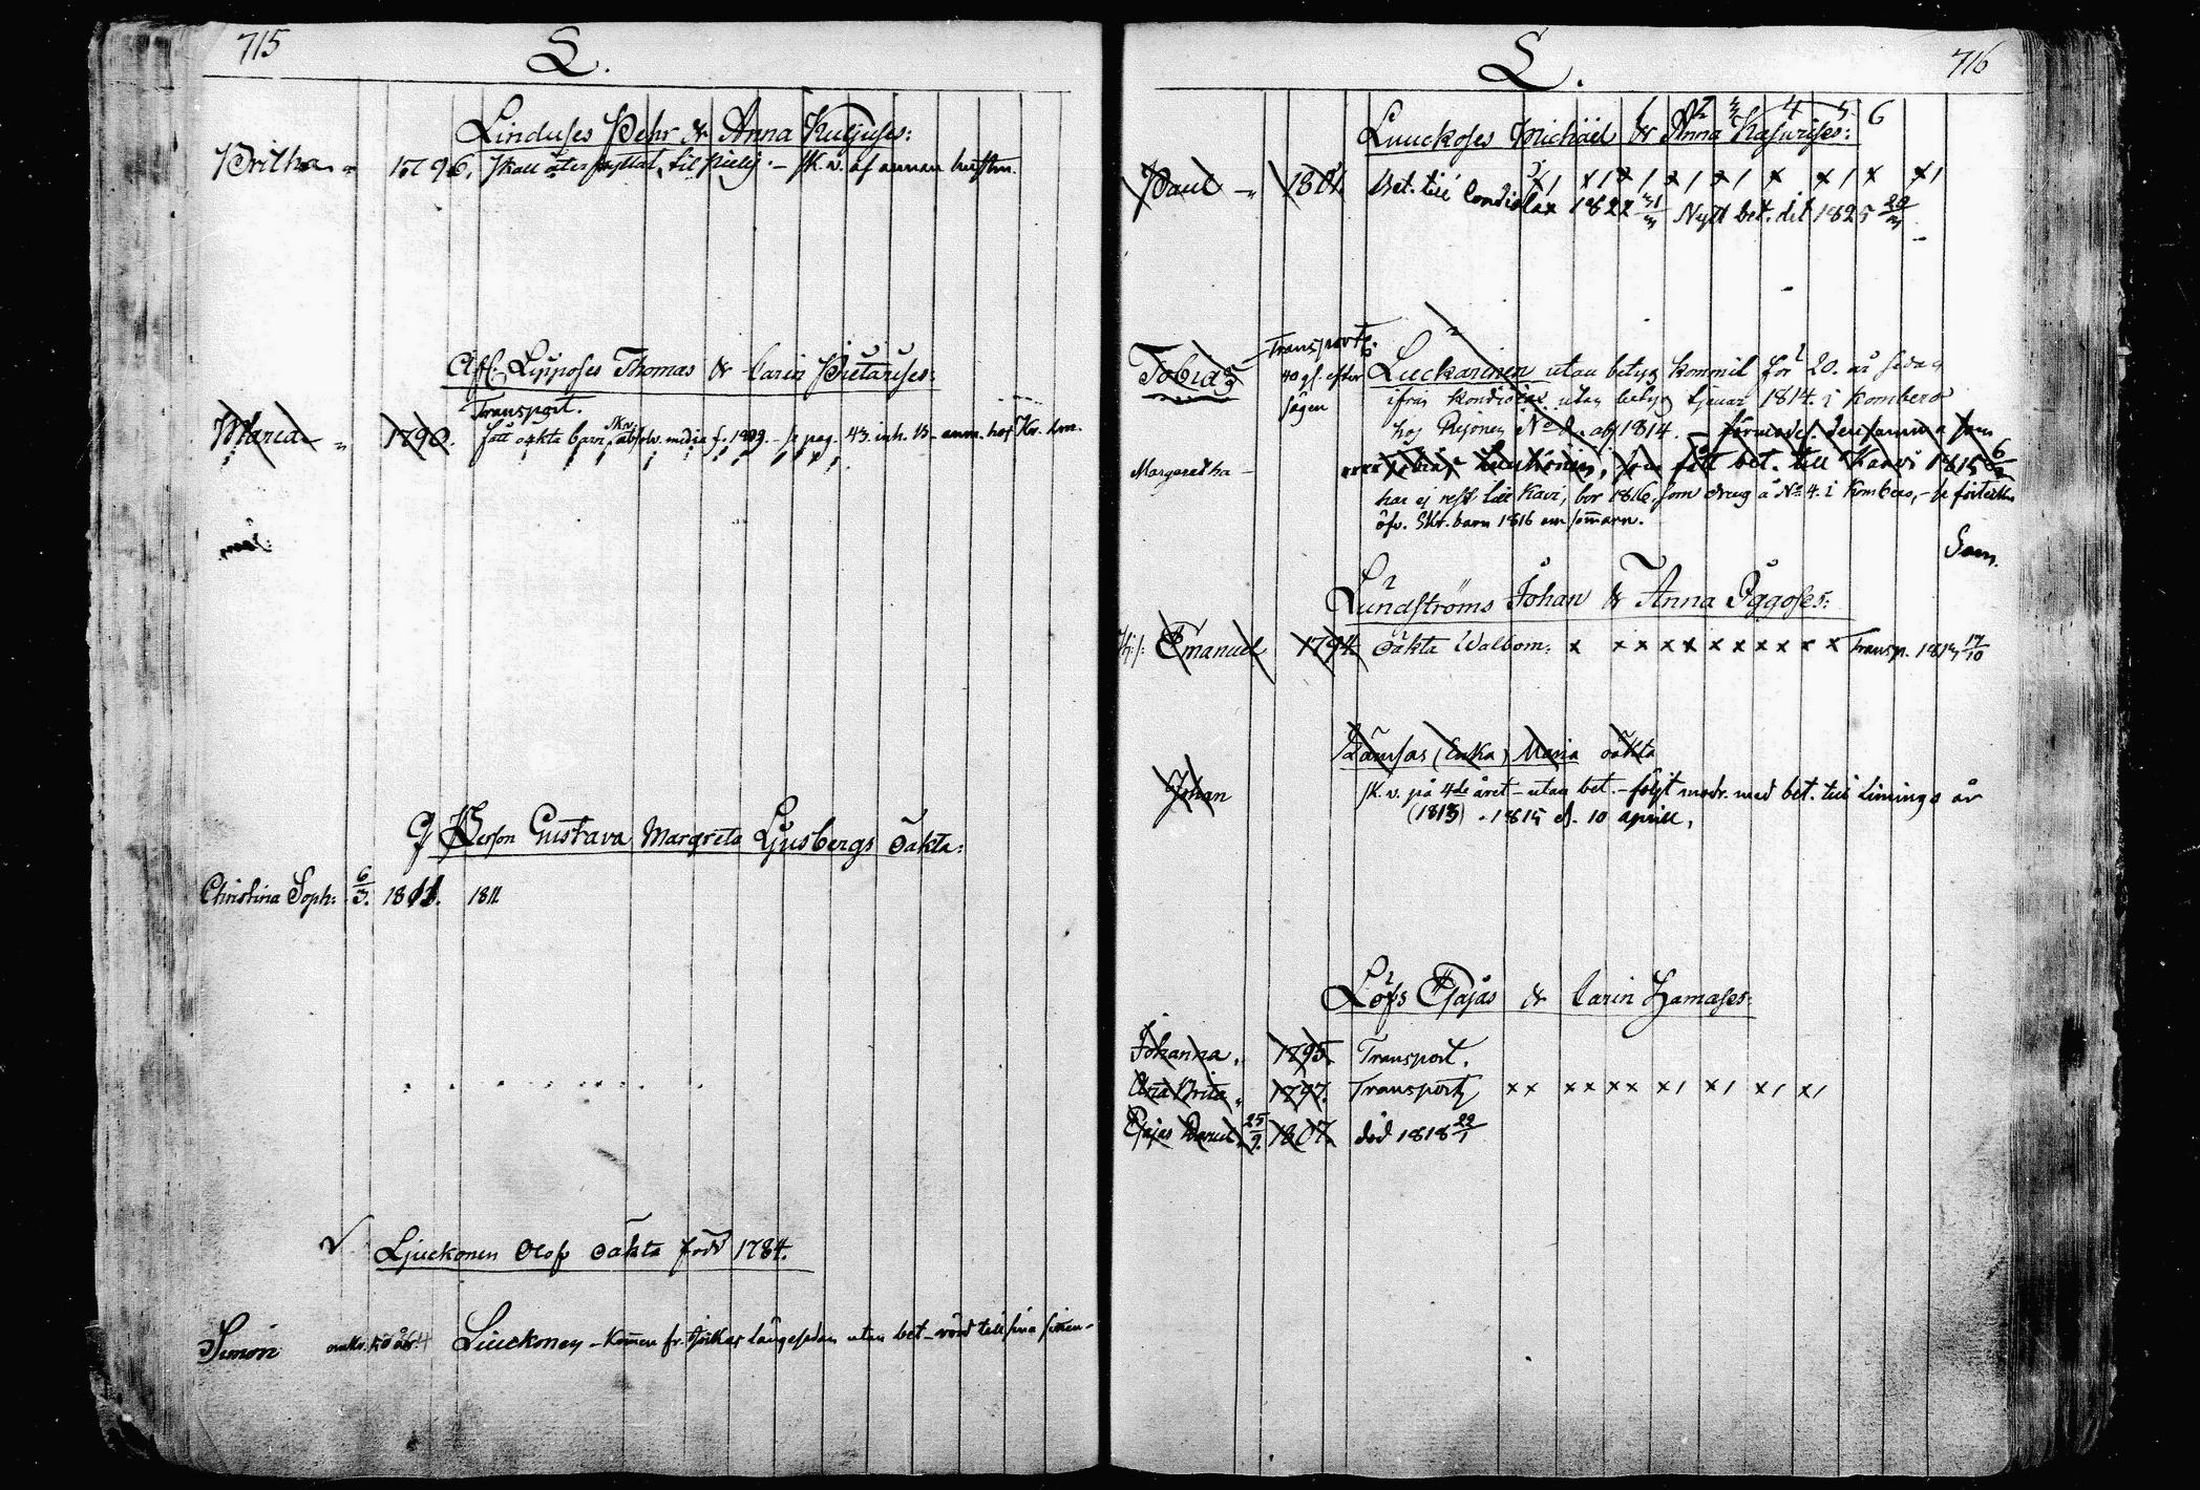 715
L.
Linduses Pehr & Anna Kuljuses:
Britha " 1796. skall åter flyttat til Pielis. - sk. v. af annan husfbm.
Afl. Lipposes Thomas & Carin Pietarises:
Transport.
Maria " 1790. fått oäkta barn, absolv. media f. 1809. - se pag. 43. inh. 13 - anm. hos Kr. dm.
G Person Gustava Margreta Ljusbergs oäkta:
Christina Soph: 6/3. 1811. 1811
Ljuckonen Olof oäkta född 1784.
Simon omkr. 50 år. Liuckonen - kommen fr. längesedan utan bet -
L.
716
1 2 3 4 5 6
Luuckoses Michäel & Anna Hasurises:
Paul " 1801. Bet. till x1 x1 x1 x1 x1 x x1 x x1
Condiolax 1822 31/3 Nytt bet. dit 1825 20/3
Transport.
Tobias 40 gl. efter Luckarinen utan betyg kommit för 20. år sedan
sägen ifrån Kondiolax utan betyg tjenar 1814. i Kombero
hos Risonen No 2. af 1814. - förmodl. densamma som
Margaretha - Tobias som fått bet. till Kaavi 1815 6/
har ej rest till Kavi, bor 1816 som dreng å No 4. i Kombero, - se
öfv. Skr. barn 1816 om sommarn.
Sam.
Lundströms Johan & Anna Iggoses:
Emanuel 1794. oäkta Walbom: x x x x x x x x x x x Transp. 1813 17/10
Länsas (Enka) Maria oäkta
Johan sk. v. på 4de året - utan bet. - följt modr. med bet. till Limingo år
(1813) . 1815 d. 10 april.
Löfs Esajas & Carin Hamases:
Johanna " 1795. Transport.
Ana Brita " 1797. Transport xx xx xx x1 x1 x1 x1
Esajas Daniel 25/9. 1807. död 1818 22/1